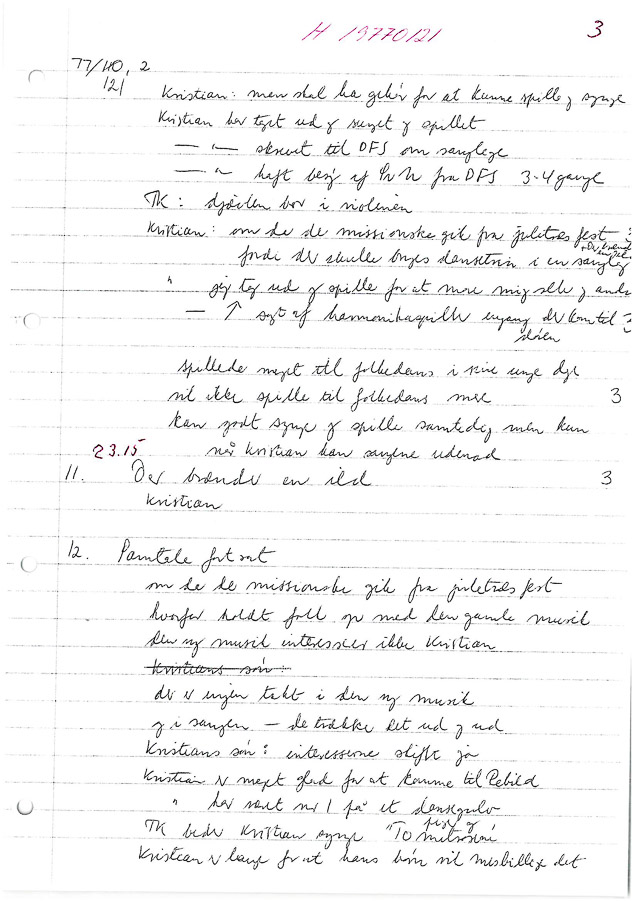 H 19770121
3
77/40, 2
121
Kristian: man skal ha gehør for at kunne spille og synge
Kristian har taget ud og sunget og spillet
— " — skrevet til DFS om sanglege
— " — haft besøg af fra DFS 3-4 gange
TK: djævlen bor i violinen
Kristian: om da de missionske gik fra juletræsfest 3
fordi der skulle bruges dansetrin i en sangleg
" jeg tog ud og spille for at more mig selv og andre
— ↑ sagt af harmonikaspiller engang der kom til 3
døren
spillede meget til folkedans i sine unge dage
vil ikke spille til folkedans mere 3
kan godt synge og spille samtidig men kun
23.15 når Kristian kan sangene udenad
11. Der brænder en ild 3
Kristian
12. Samtale fortsat
om da de missionske gik fra juletræsfest
hvorfor holdt folk op med den gamle musik
den ny musik interesserer ikke Kristian
Kristians søn:
der er ingen takt i den ny musik
og i sangen — de trækker det ud og ud
Kristians søn: interesserne skifter jo
Kristian er meget glad for at komme til Rebild
" har været nr 1 på et dansegulv
TK beder Kristian synge "To
Kristian er bange for at hans børn vil misbillige det